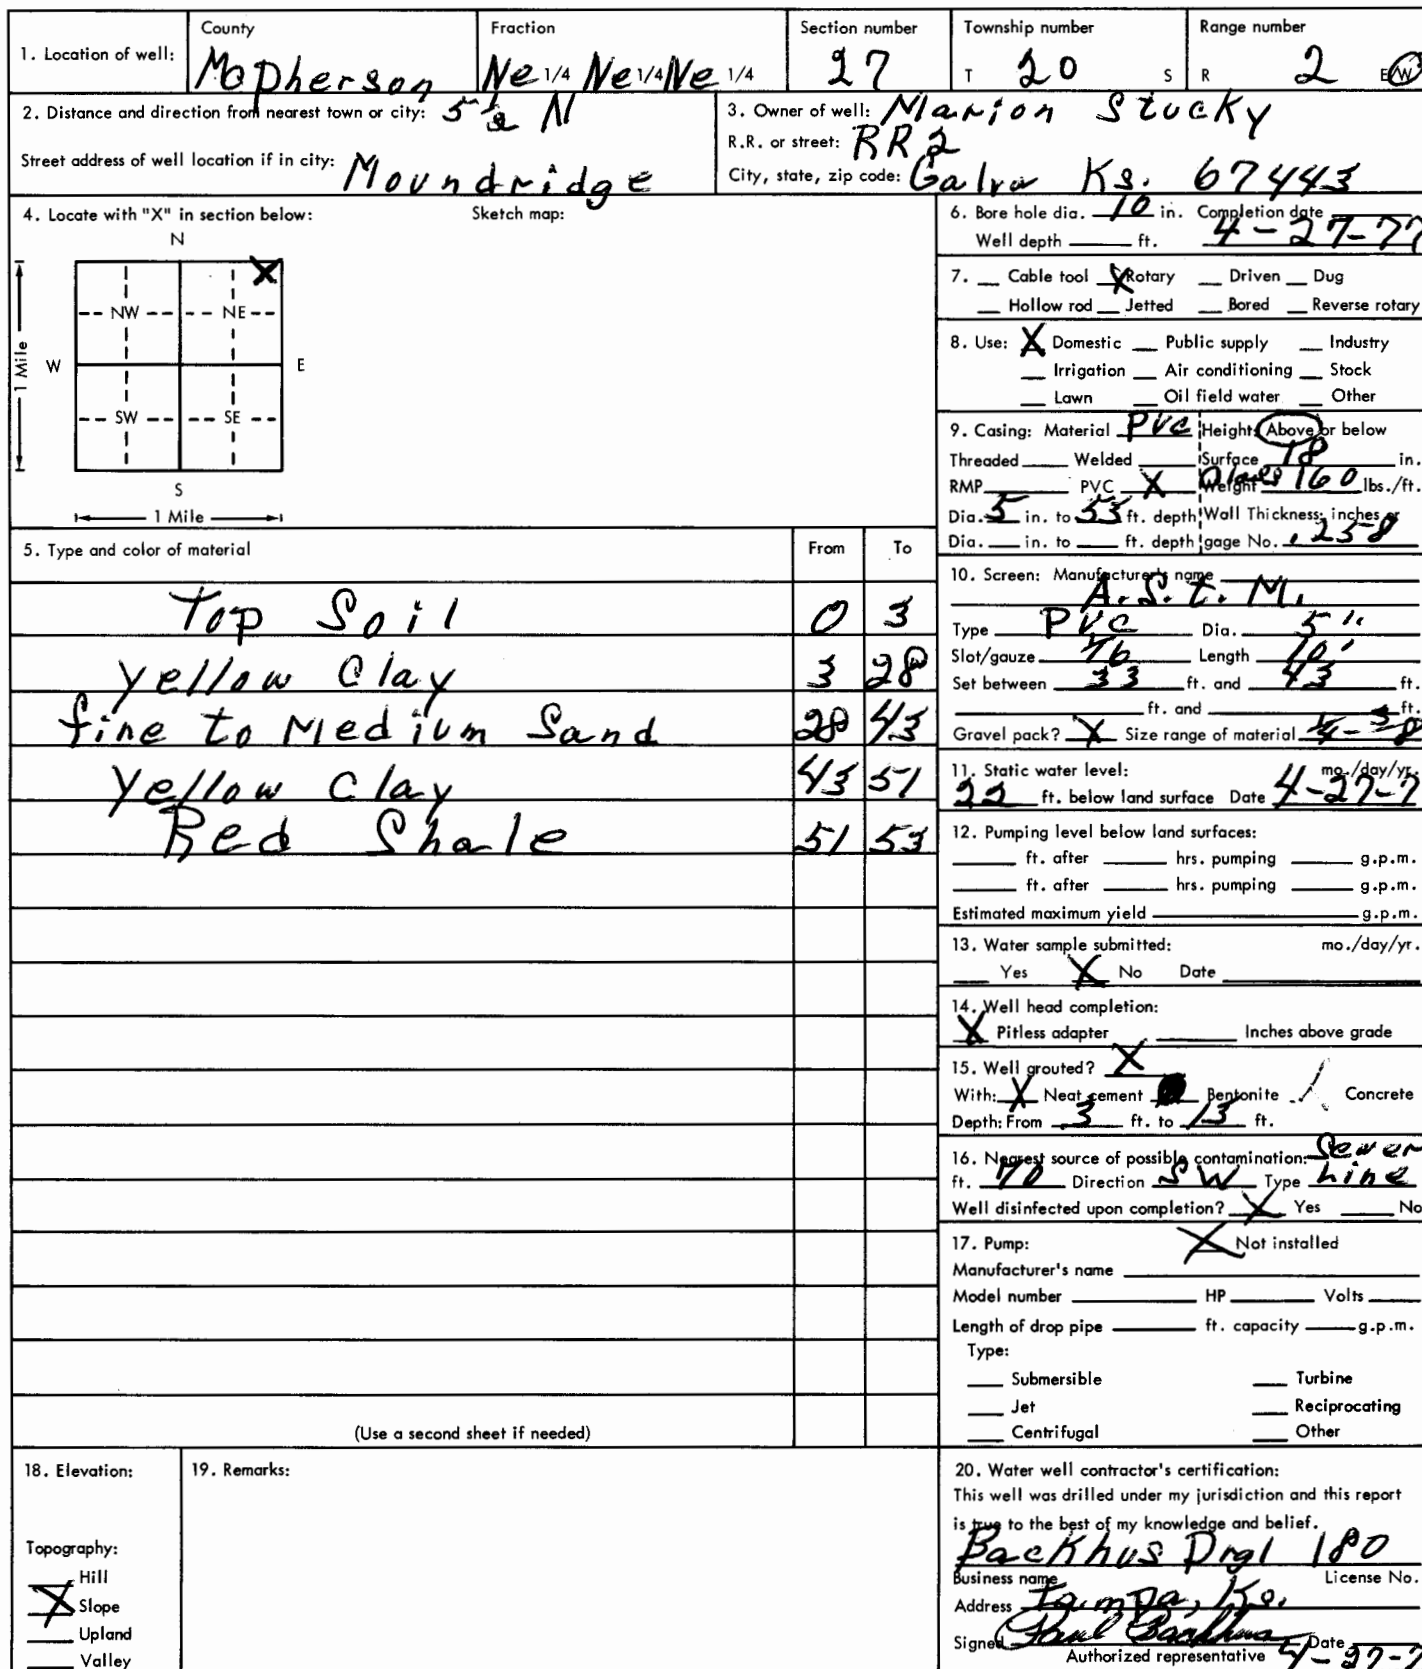 1. Location of well: County McPherson Fraction Ne 1/4 Ne 1/4 Ne 1/4 Section number 27 Township number T 20 S Range number R 2 E/W
2. Distance and direction from nearest town or city: 5 1/2 N
Street address of well location if in city: Moundridge
3. Owner of well: Marion Stucky
R.R. or street: RR2
City, state, zip code: Galva Ks. 67443
4. Locate with "X" in section below: Sketch map:
N
X
NW NE
W E
1 Mile
SW SE
S
1 Mile
5. Type and color of material From To
Top Soil 0 3
Yellow Clay 3 28
fine to Medium Sand 28 43
Yellow Clay 43 51
Red Shale 51 53
(Use a second sheet if needed)
6. Bore hole dia. 10 in. Completion date
Well depth ___ ft. 4-27-77
7. __ Cable tool X Rotary __ Driven __ Dug
__ Hollow rod __ Jetted __ Bored __ Reverse rotary
8. Use: X Domestic __ Public supply __ Industry
__ Irrigation __ Air conditioning __ Stock
__ Lawn __ Oil field water __ Other
9. Casing: Material PVC Height: Above or below
Threaded ___ Welded ___ Surface 18 in.
RMP ___ PVC X Weight Class 160 lbs./ft.
Dia. 5 in. to 53 ft. depth Wall Thickness: inches or
Dia. ___ in. to ___ ft. depth gage No. .258
10. Screen: Manufacturer's name
A.S.t.M.
Type PVC Dia. 5"
Slot/gauze Length 10'
Set between 33 ft. and 43 ft.
___ ft. and ___ ft.
Gravel pack? X Size range of material
11. Static water level: mo./day/yr.
22 ft. below land surface Date 4-27-7
12. Pumping level below land surfaces:
___ ft. after ___ hrs. pumping ___ g.p.m.
___ ft. after ___ hrs. pumping ___ g.p.m.
Estimated maximum yield ___ g.p.m.
13. Water sample submitted: mo./day/yr.
___ Yes X No Date ___
14. Well head completion:
X Pitless adapter ___ Inches above grade
15. Well grouted? X
With: X Neat cement Bentonite Concrete
Depth: From 3 ft. to 13 ft.
16. Nearest source of possible contamination: Sewer
ft. 70 Direction SW Type Line
Well disinfected upon completion? X Yes ___ No
17. Pump: X Not installed
Manufacturer's name ___
Model number ___ HP ___ Volts ___
Length of drop pipe ___ ft. capacity ___ g.p.m.
Type:
___ Submersible ___ Turbine
___ Jet ___ Reciprocating
___ Centrifugal ___ Other
18. Elevation:
Topography:
Hill
X Slope
___ Upland
___ Valley
19. Remarks:
20. Water well contractor's certification:
This well was drilled under my jurisdiction and this report
is true to the best of my knowledge and belief.
Backhus Drgl 180
Business name License No.
Address Tampa, Ks.
Signed Paul Backhus Date
Authorized representative 4-27-7